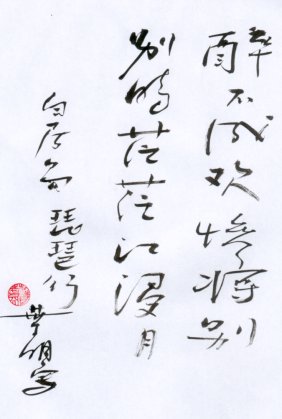 醉不成欢惨将别
别時茫茫江浸月
白居易琵琶行
明写